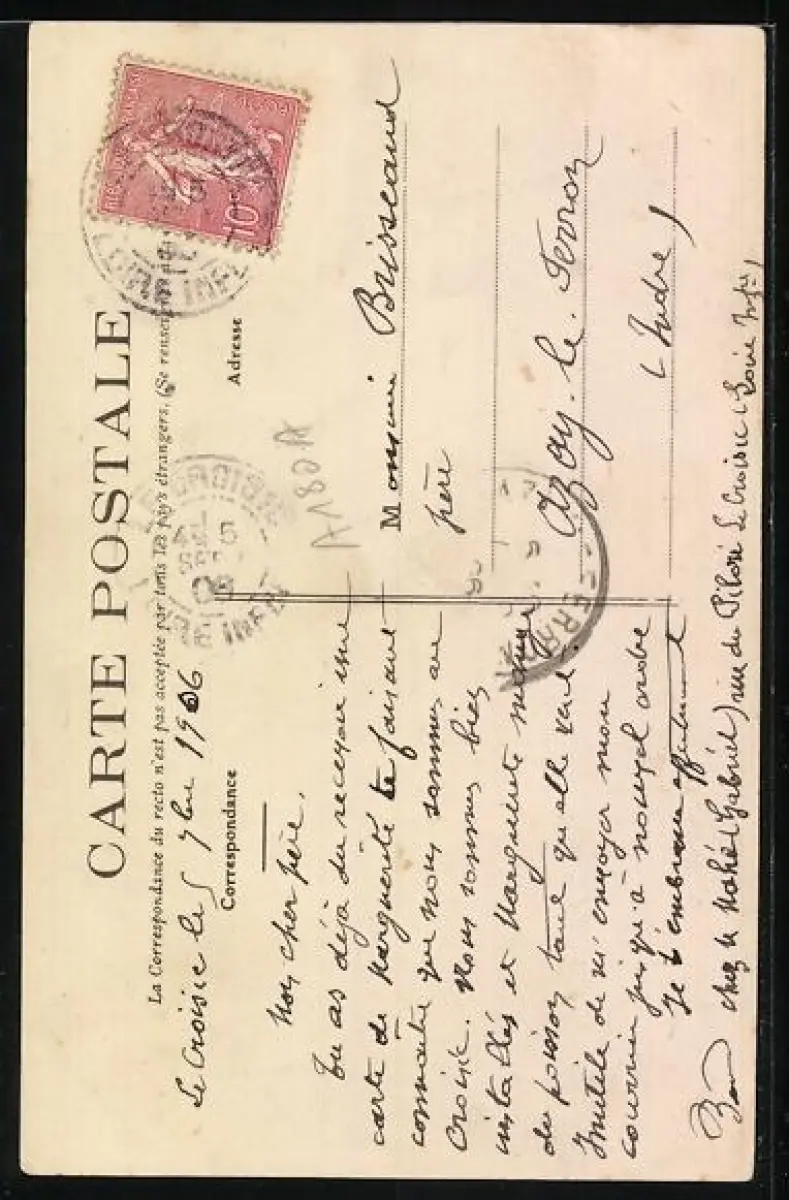 CARTE POSTALE
La Correspondance du recto n'est pas acceptée par tous les pays étrangers. (Se renseigner
Correspondance
Adresse
Le Croisic le 5 7bre 1906
Mon cher père,
Tu as déjà du recevoir une
carte de Marguerite te faisant
connaitre que nous sommes au
Croisic. Nous sommes bien
installés et Marguerite mange
du poisson tant qu'elle veut.
Inutile de m'envoyer mon
courrier jusqu'à nouvel ordre
Je t'embrasse affectueusement
chez M Mahé (Gabriel) rue du Pilori Le Croisic (Loire Infre)
Monsieur Brisseaud
père
Azay-le-Ferron
(Indre)
A182A
10
LE CROISIC
LOIRE INFRE